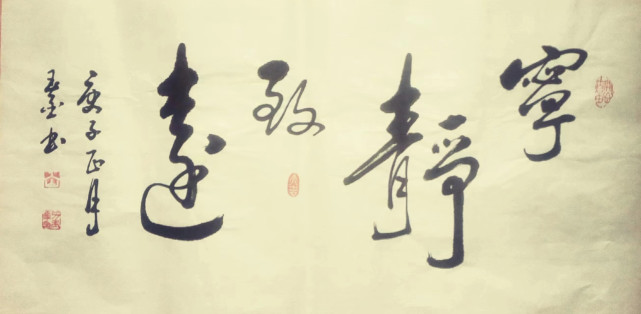 寧靜致遠
庚子正月